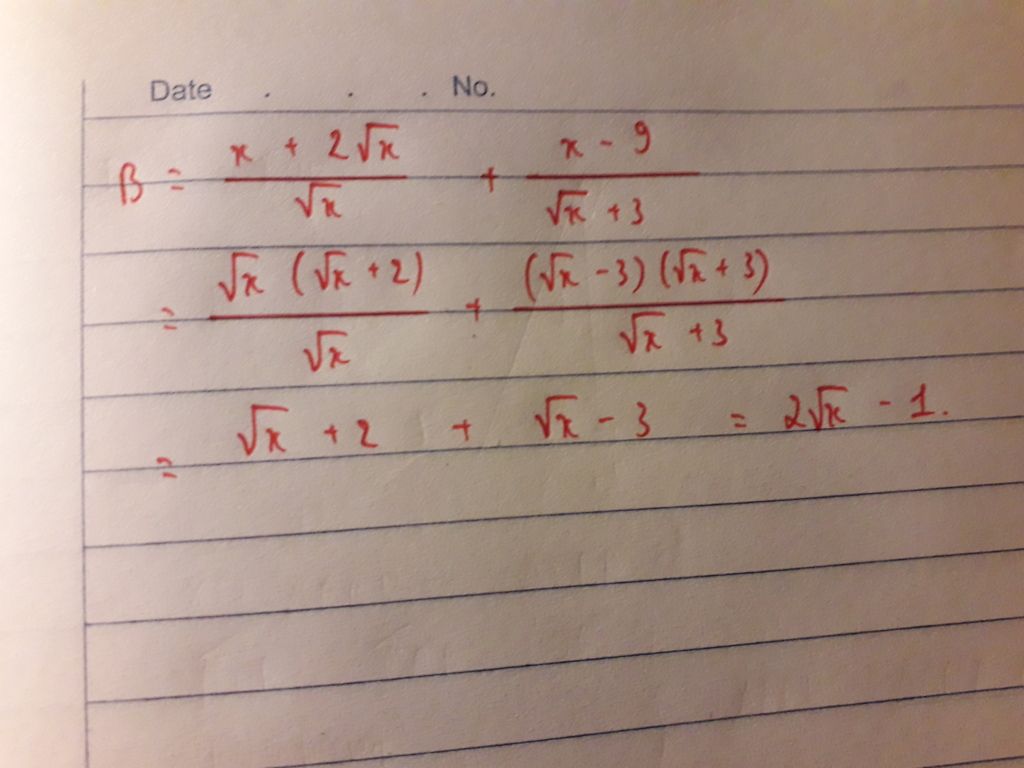 Date . . . No.
B = (x + 2√x)/√x + (x - 9)/(√x + 3)
= (√x (√x + 2))/√x + ((√x - 3)(√x + 3))/(√x + 3)
= √x + 2 + √x - 3 = 2√x - 1.